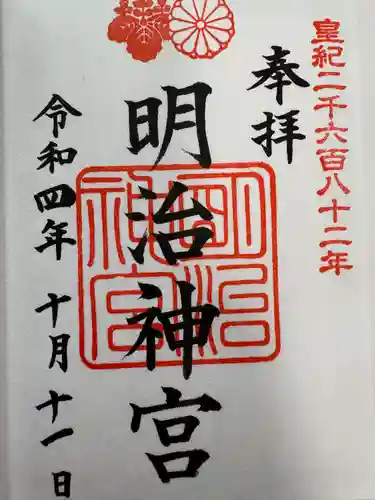 皇紀二千六百八十二年
奉拝
明治神宮
明治神宮
令和四年 十月 十一日